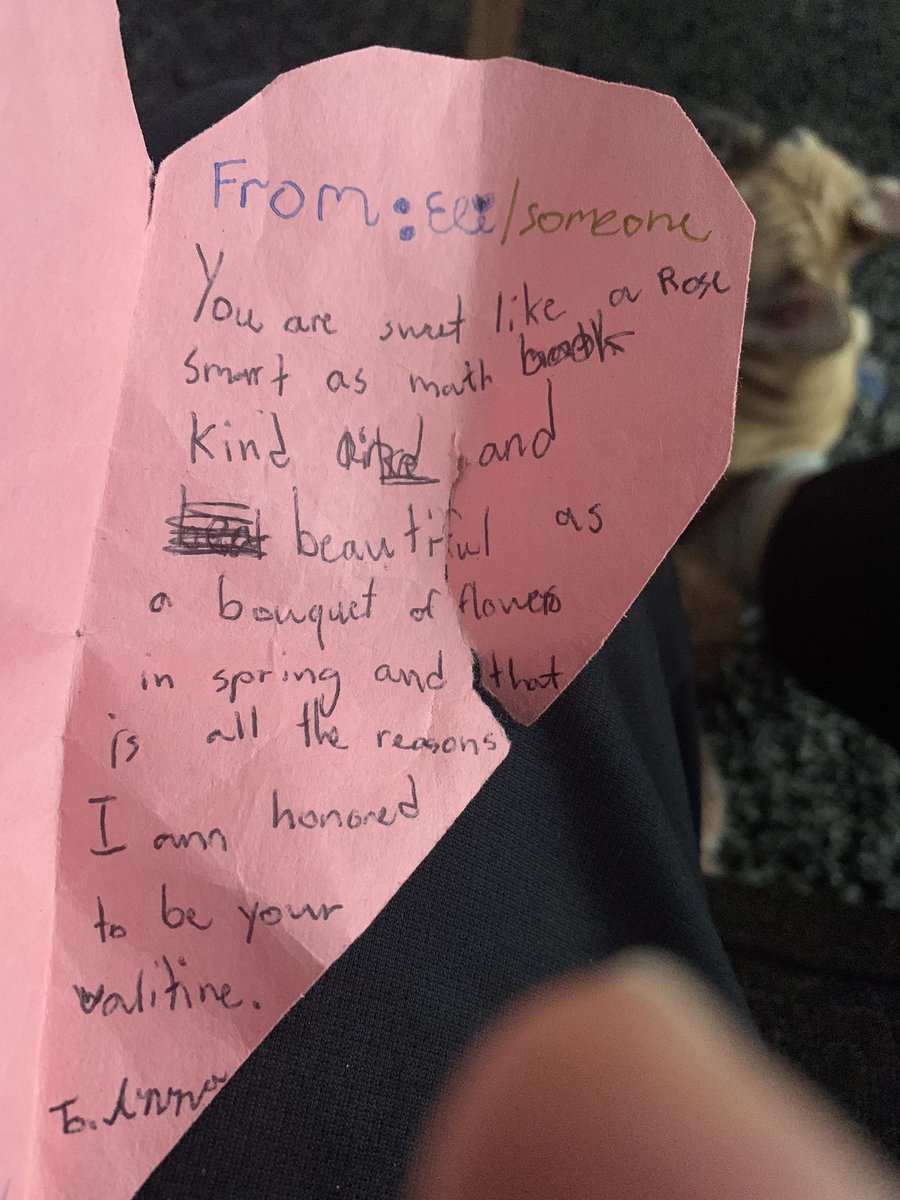 From: Eli/someone
You are sweet like a Rose
smart as math
Kind and
beautiful as
a bouquet of flowers
in spring and that
is all the reasons
I am honored
to be your
valitine.
To. Anna